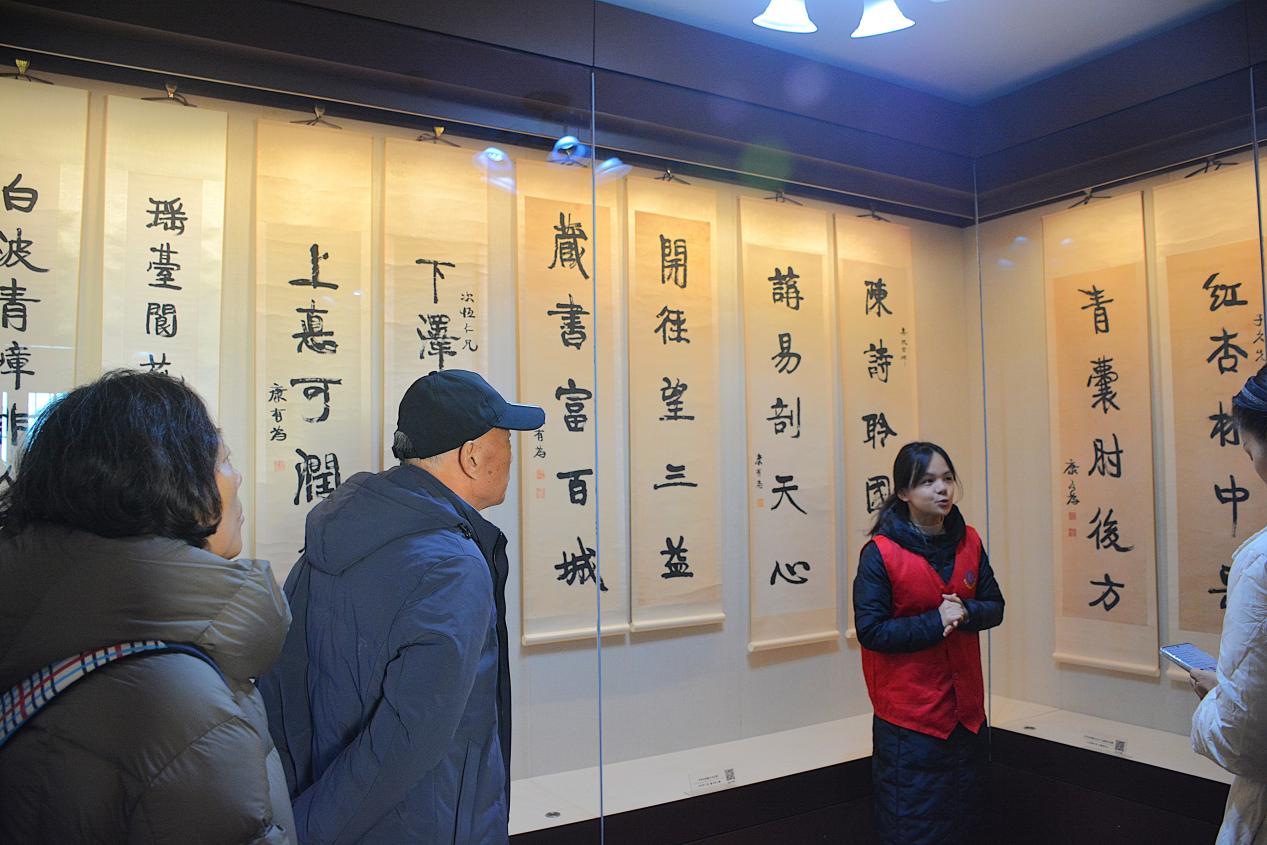 紅杏林中
青囊肘後方
康有為
陳詩聆國
講易剖天心
康有為
開徑望三益
藏書富百城
有為
次恆仁兄
下澤
上悳可潤
康有為
瑶臺閬
白波青嶂非